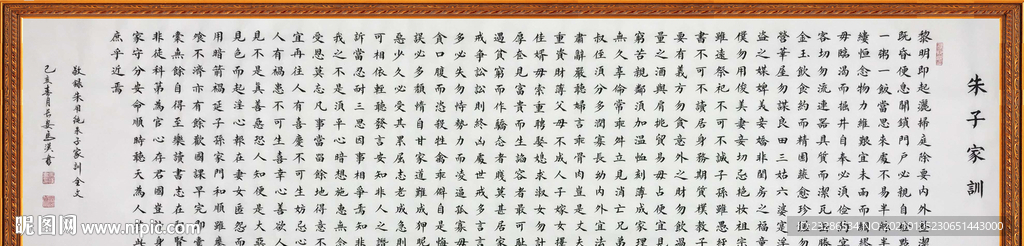 朱子家訓
黎明即起灑掃庭除要内外潔
既昏便息關鎖門戶必親自
一粥一飯當思來處不易半
縷恒念物力維艱宜未雨而
毋臨渴而掘井自奉必須儉
客切勿流連器具質而潔瓦
金玉飲食約而精園蔬愈珍
營華屋勿謀良田三姑六婆
盜之媒婢美妾嬌非閨房之福
僕勿用俊美妻妾切忌艷妝祖宗
雖遠祭祀不可不誠子孫雖愚
書不可不讀居身務期質樸教
要有義方勿貪意外之財勿飲
量之酒與肩挑貿易毋占便宜
苦親鄰須加溫恤刻薄成家理
無久享倫常乖舛立見消亡兄弟
叔侄須分多潤寡長幼内外宜法
肅辭嚴聽婦言乖骨肉豈是丈
重資財薄父母不成人子嫁女
佳婿毋索重聘娶媳求淑女勿計
奩見富貴而生諂容者最可
遇貧窮而作驕態者賤莫甚居家
戒爭訟訟則終凶處世戒多言
多必失勿恃勢力而凌逼孤寡
貪口腹而恣殺牲禽乖僻自是
誤必多頹惰自甘家道難成狎昵
惡少久必受其累屈志老成急
可相依輕聽發言安知非人之
訴當忍耐三思因事相爭焉知非
我之不是須平心暗想施惠無念
受恩莫忘凡事當留餘地得意不
宜再往人有喜慶不可生妒忌心
人有禍患不可生喜幸心善欲
見不是真善惡恐人知便是大惡
見色而起淫心報在妻女匿怨而
用暗箭禍延子孫家門和順雖
飧不濟亦有餘歡國課早完即
橐無餘自得至樂讀書志在聖賢
非徒科第爲官心存君國豈計身
家守分安命順時聽天爲人若此
庶乎近焉
敬錄朱用純朱子家訓全文
昵图网 www.nipic.com
ID:23286534 NO:20201105230651443000